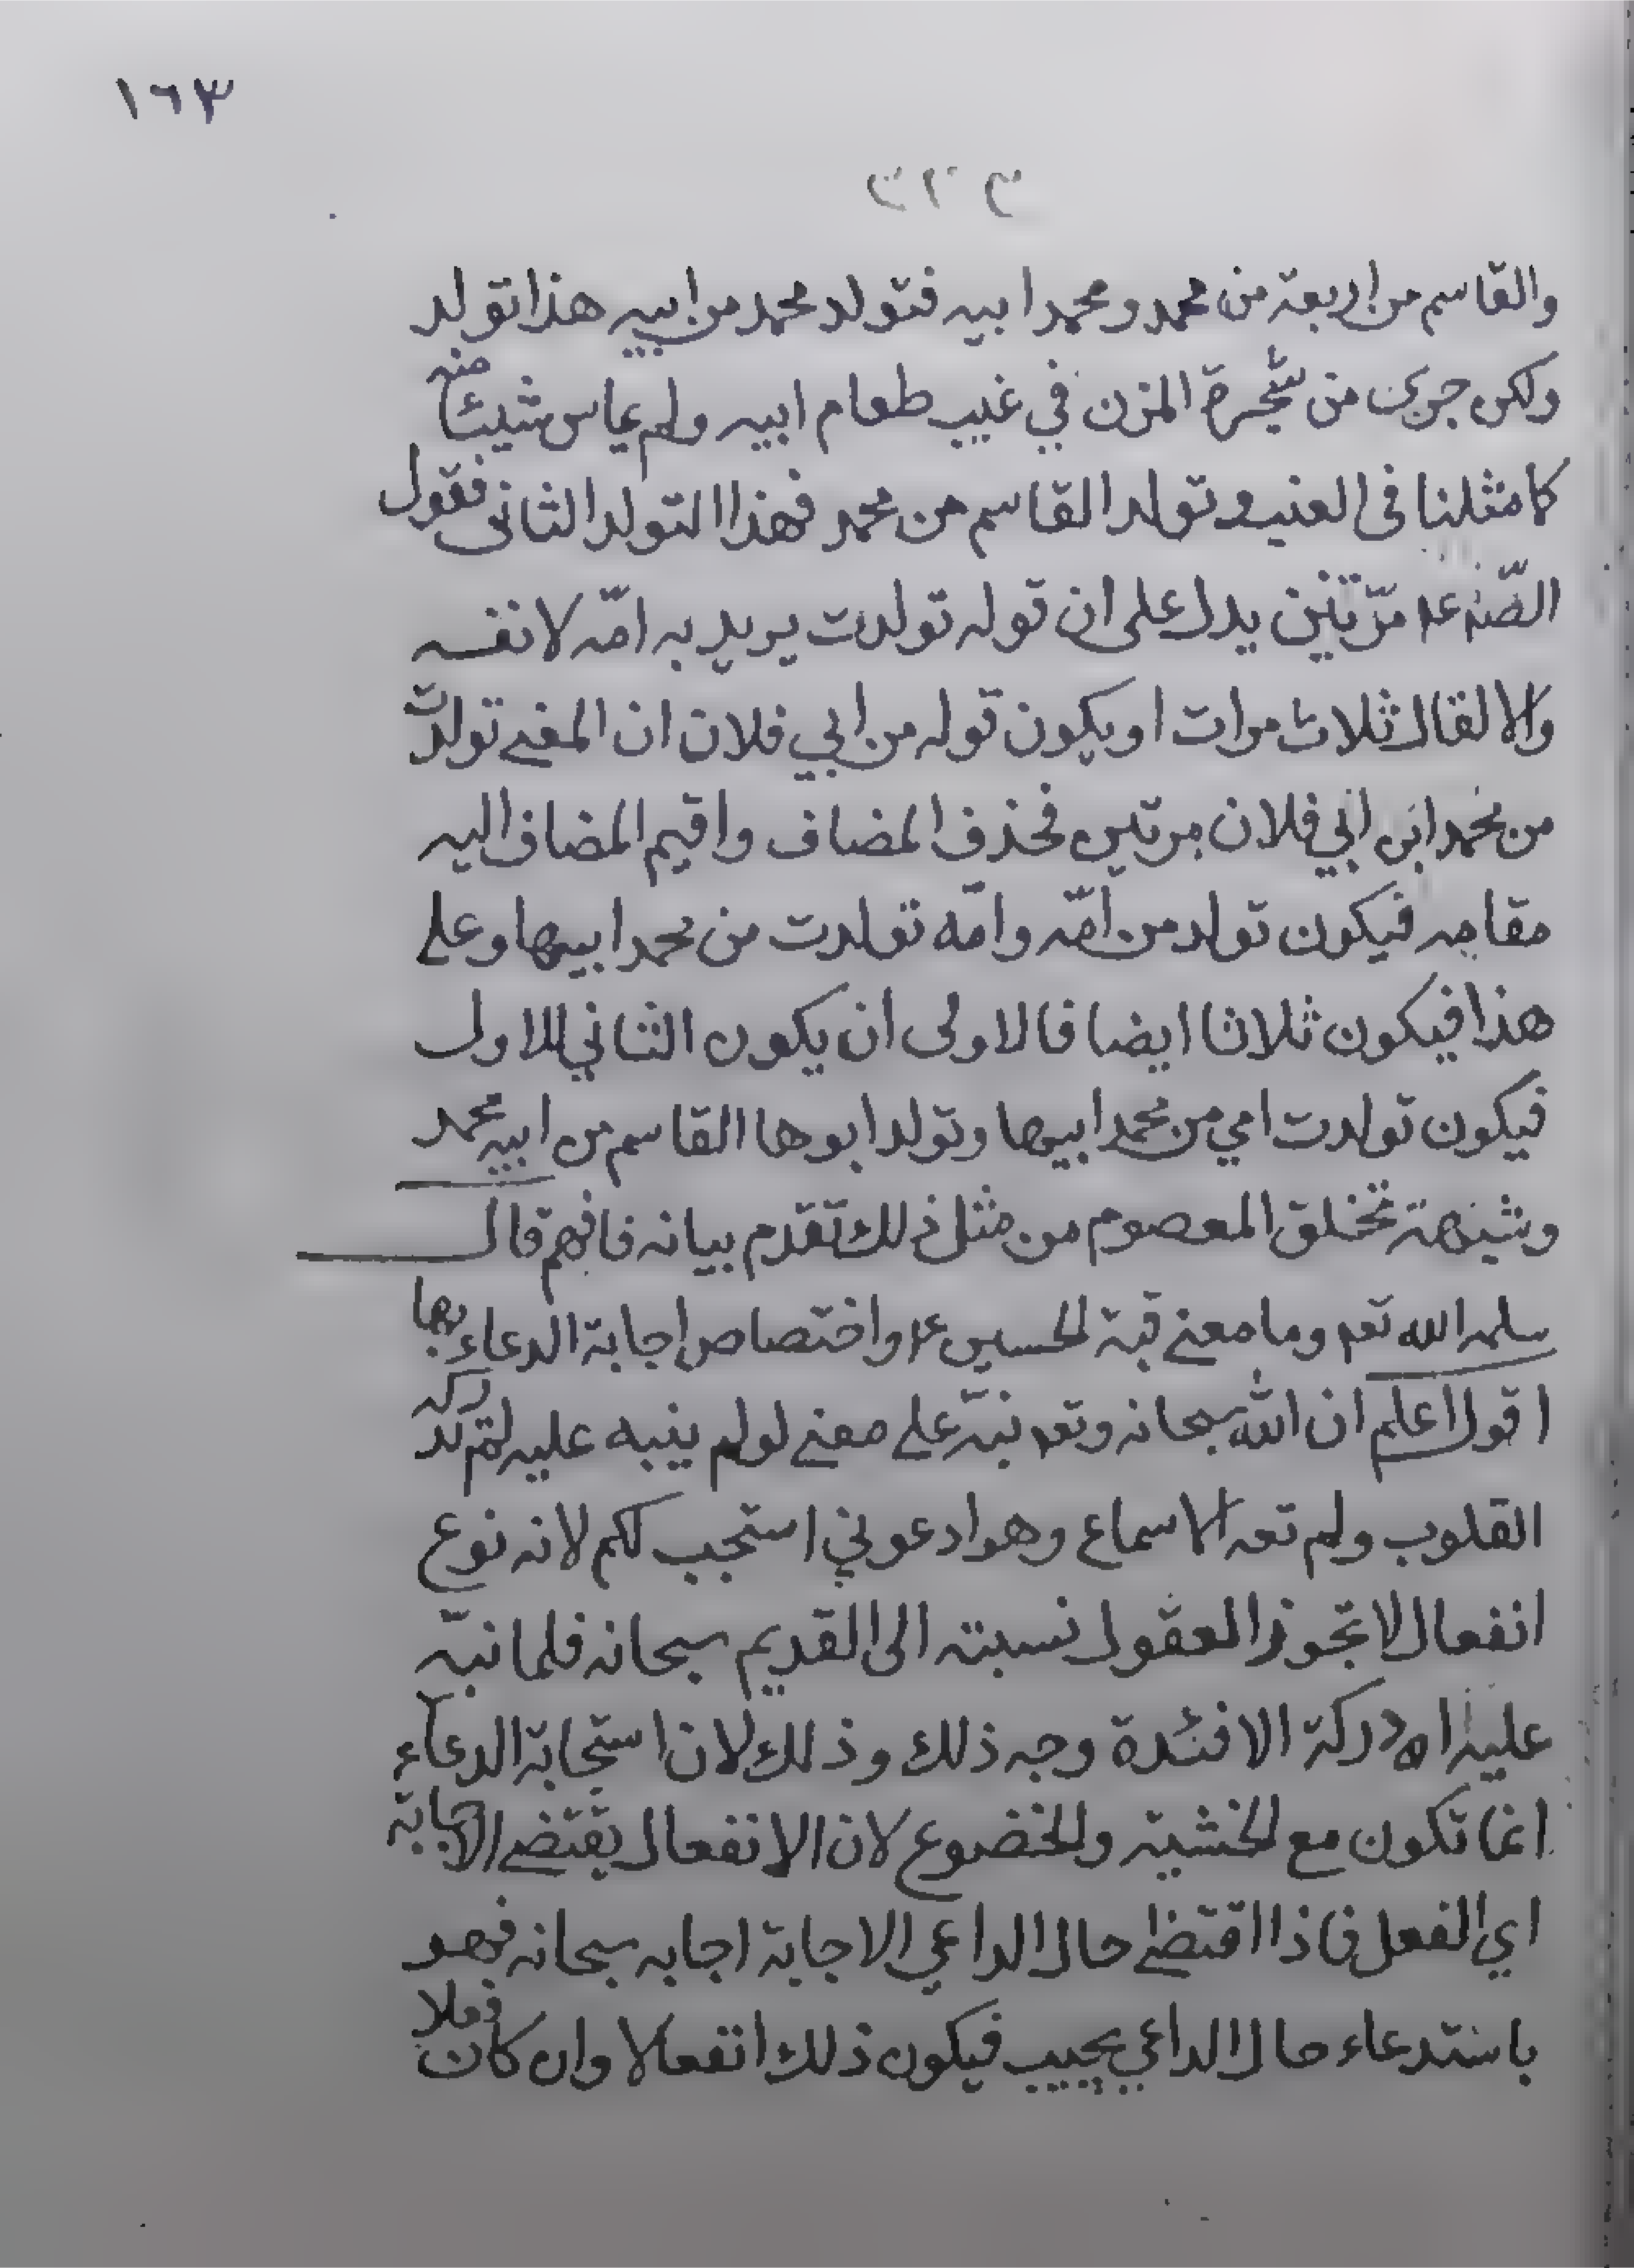 ١٦٣
والقاسم من اربعة من محمد ومحمد ابيه فتولد محمد من ابيه هذا تولد
ولكن جرى من شجرة المزن في غيب طعام ابيه ولم يماس شيئا منه
كما مثلنا في العنب وتولد القاسم من محمد فهذا التولد الثاني فقول
الصّ عه مرّتين يدل على ان قوله تولدت يريد به امّه لا نفسه
والا لقال ثلاث مرات او يكون قوله من ابي فلان ان المعنى تولدت
من محمد ابن ابي فلان مرتين فحذف المضاف واقيم المضاف اليه
مقامه فيكون تولد من امّه وامّه تولدت من محمد ابيها وعلى
هذا فيكون ثلاثا ايضا فالاولى ان يكون الثاني للاول
فيكون تولدت امي من محمد ابيها وتولد ابوها القاسم من ابيه محمد
وشبهة تخلق المعصوم من مثل ذلك تقدم بيانه فافهم قال
سلمه الله تعه وما معنى قبة الحسين ع واختصاص اجابة الدعاء بها
اقول اعلم ان الله سبحانه وتعه نبّه على معنى لو لم ينبه عليه لم تدركه
القلوب ولم تعه الاسماع وهو ادعوني استجب لكم لانه نوع
انفعال لا تجوز العقول نسبته الى القديم سبحانه فلما نبّه
عليه ادركة الافئدة وجه ذلك وذلك لان استجابة الدعاء
انما تكون مع الخشية والخضوع لان الانفعال يقتضى الاجابة
اي الفعل فاذا اقتضى حال الداعي الاجابة اجابه سبحانه فهو
باستدعاء حال الداعي يجيب فيكون ذلك انفعالا وان كان فعلا